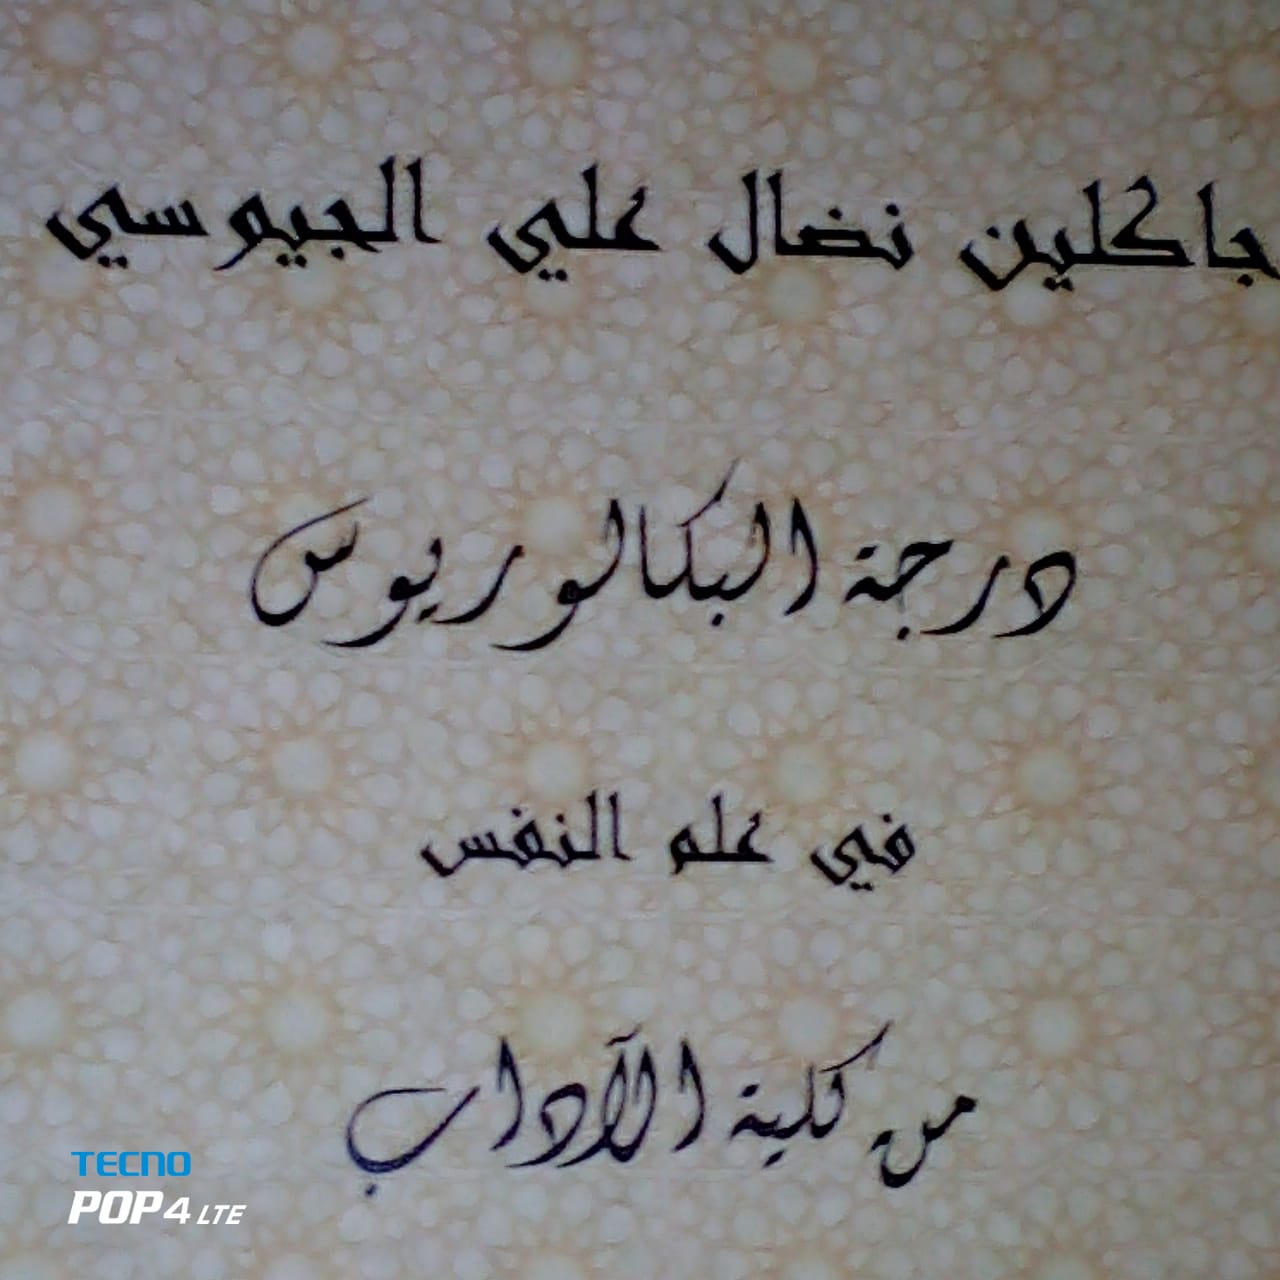 جاكلين نضال علي الجيوسي
درجة البكالوريوس
في علم النفس
من كلية الآداب
TECNO
POP 4 LTE